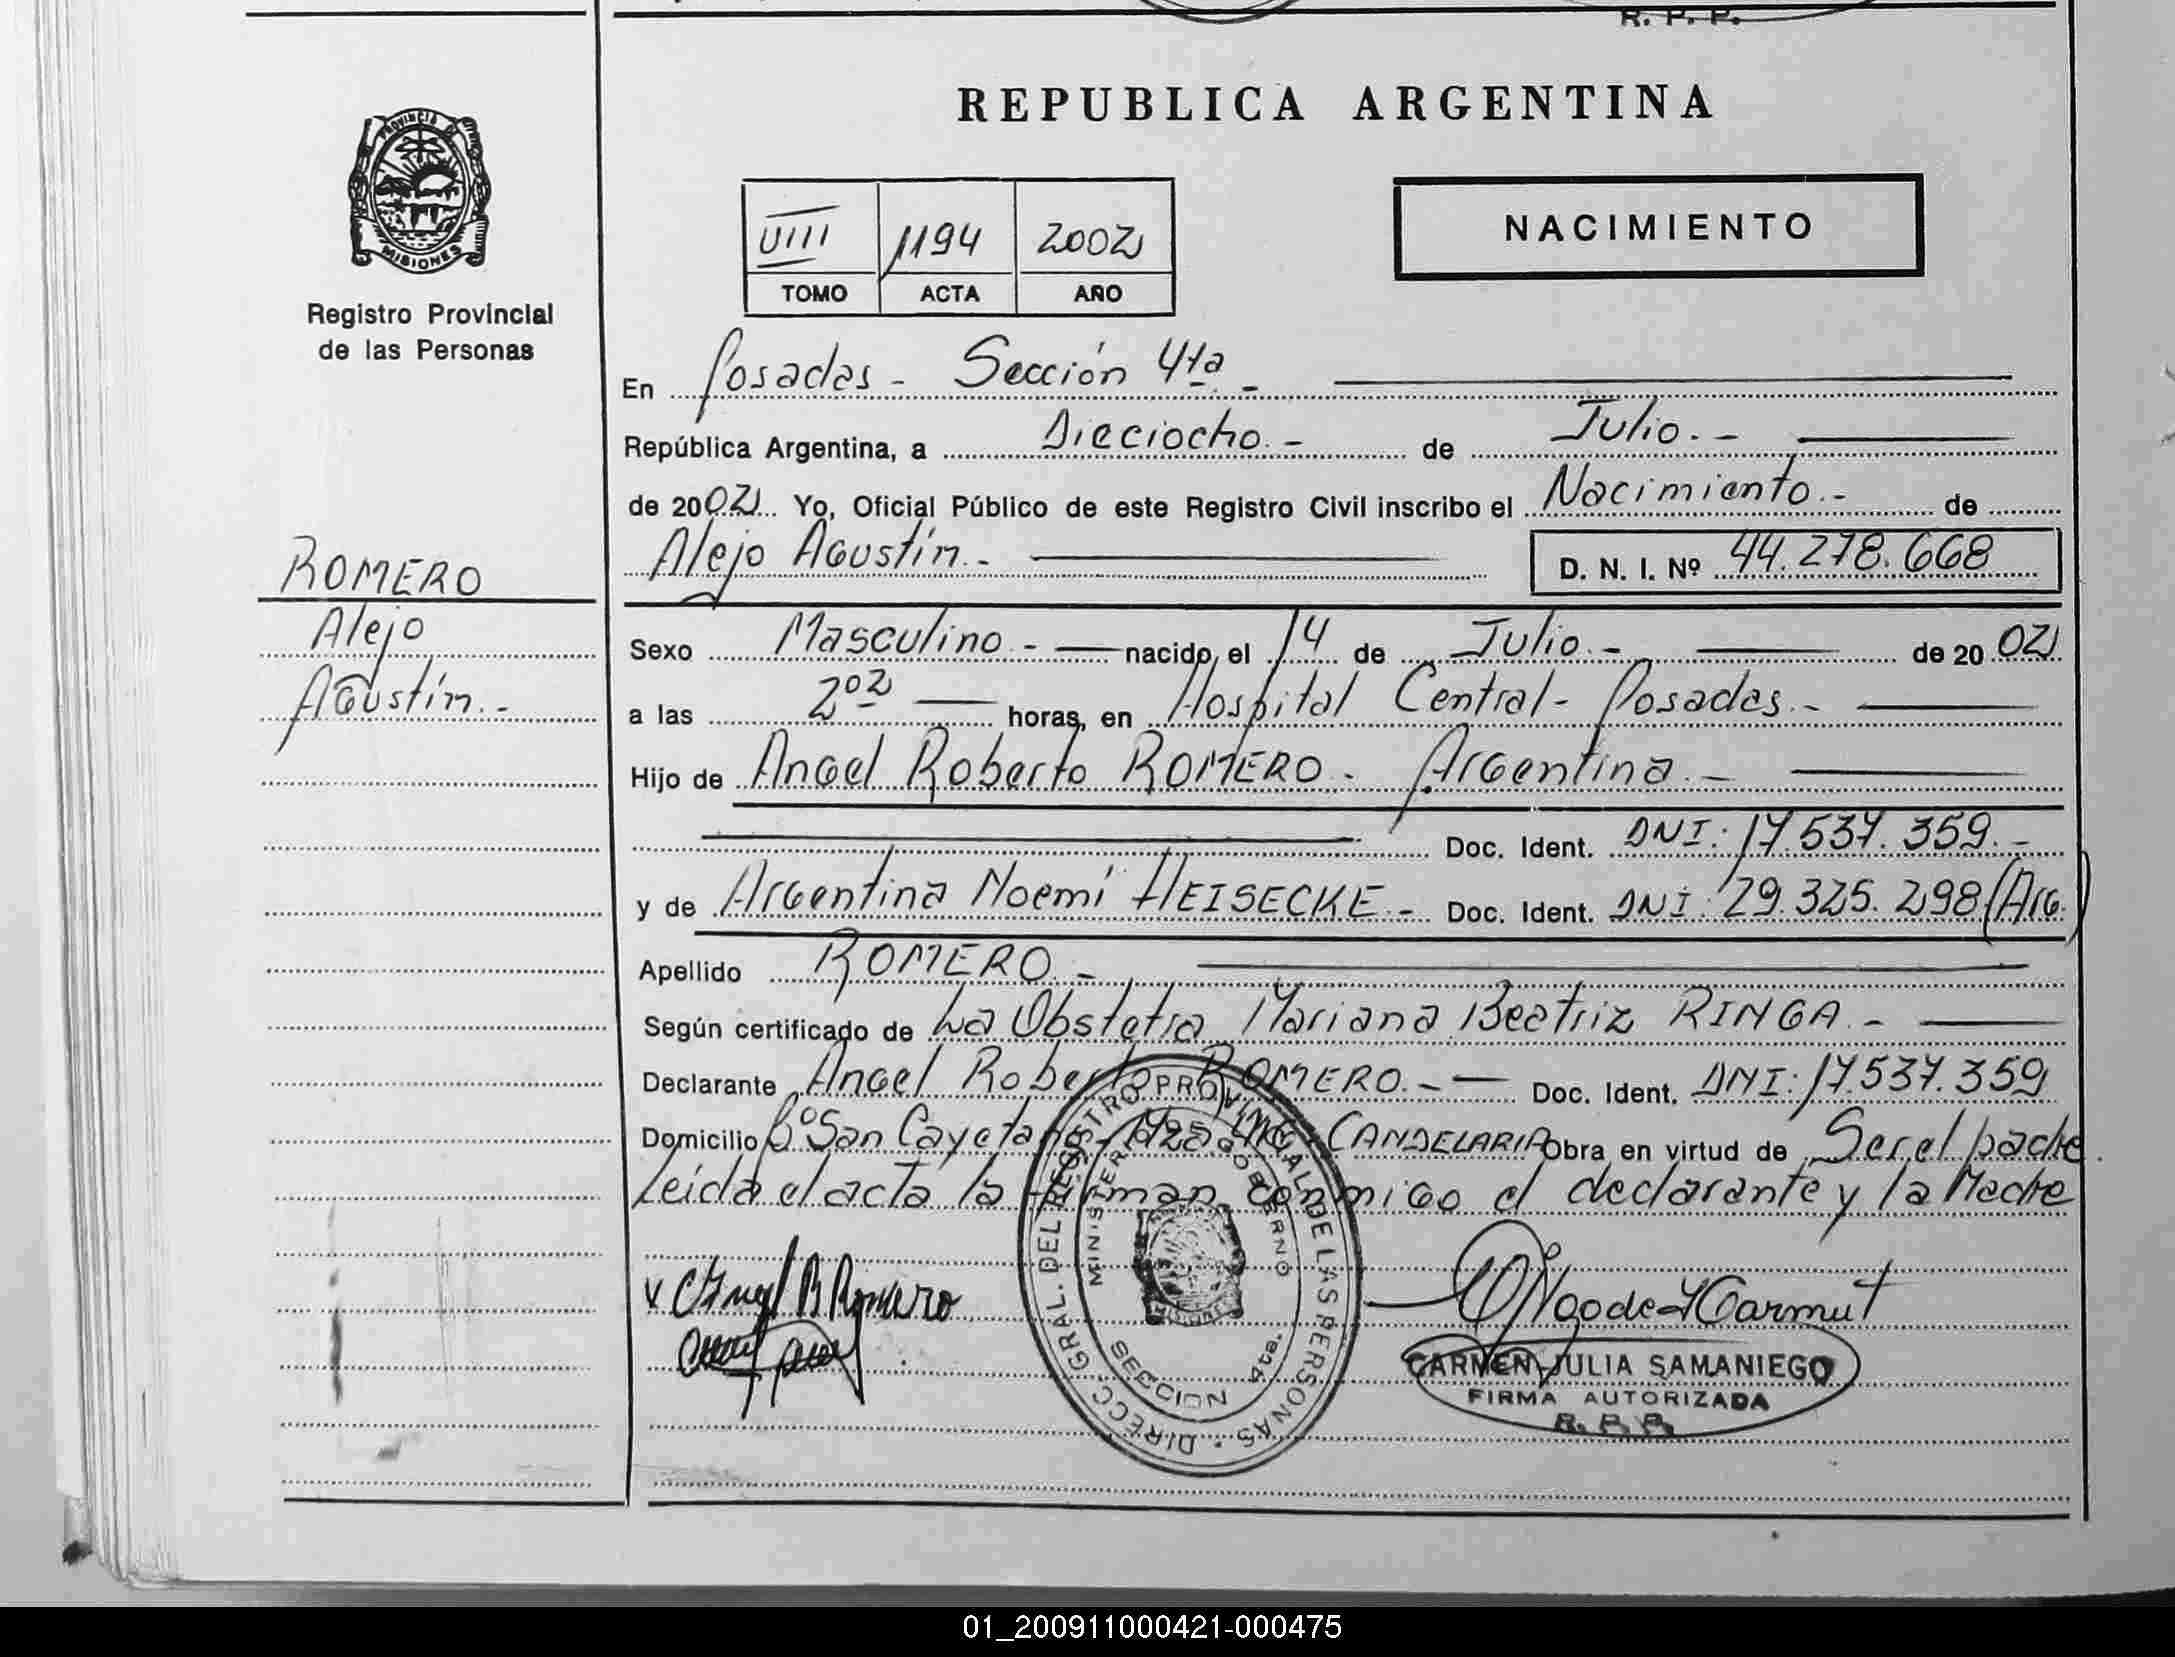 R. P. P.
REPUBLICA ARGENTINA
PROVINCIA DE
MISIONES
Registro Provincial
de las Personas
VIII 1194 2002
TOMO ACTA AÑO
NACIMIENTO
En Posadas - Sección 4ta. -
República Argentina, a Dieciocho. - de Julio. -
de 2002 Yo, Oficial Público de este Registro Civil inscribo el Nacimiento. - de
Alejo Agustín. - D. N. I. Nº 44.278.668
ROMERO
Alejo
Agustín. -
Sexo Masculino. - nacido el 14 de Julio. - de 2002
a las 2 02 horas, en Hospital Central - Posadas. -
Hijo de Angel Roberto ROMERO. Argentina. -
Doc. Ident. DNI: 17.537.359. -
y de Argentina Noemí HEISECKE. - Doc. Ident. DNI: 29.325.298 (Arg.)
Apellido ROMERO. -
Según certificado de La Obstetra Mariana Beatriz RINGA. -
Declarante Angel Roberto ROMERO. - Doc. Ident. DNI: 17.537.359
Domicilio Bº San Cayetano CANDELARIA Obra en virtud de Ser el padre.
Leída el acta la firman conmigo el declarante y la Madre
Angel R Romero
DIRECC. GRAL. DEL REGISTRO PROVINCIAL DE LAS PERSONAS
MINISTERIO GOBIERNO
SECCION 4ta.
CARMEN JULIA SAMANIEGO
FIRMA AUTORIZADA
R. P. P.
01_200911000421-000475